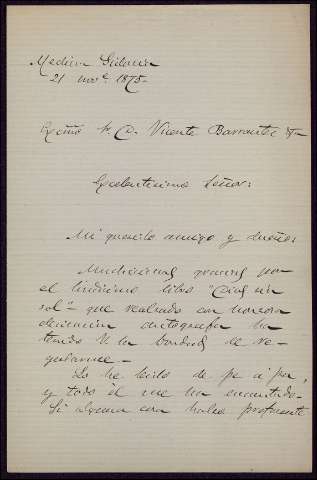 Medina Sidonia
21 nov.e 1875-
Excmo Sr D. Vicente Barrantes &a
Excelentisimo Señor:
Mi querido amigo y dueño:
Muchisimas gracias por
el lindisimo libro "Cias sin
sol" - que realzado con honrosa
dedicacion autografa ha
tenido V la bondad de re-
galarme -
Lo he leido de pe a pa,
y todo él me ha encantado -
Si alguna cosa hubo